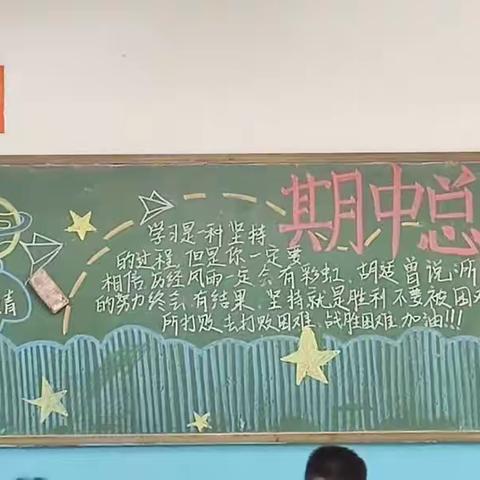 期中总
学习是一种坚持
的过程,但是你一定要
相信历经风雨一定会有彩虹,胡适曾说:所
的努力终会有结果,坚持就是胜利不要被困
所打败,去打败困难,战胜困难,加油!!!
情